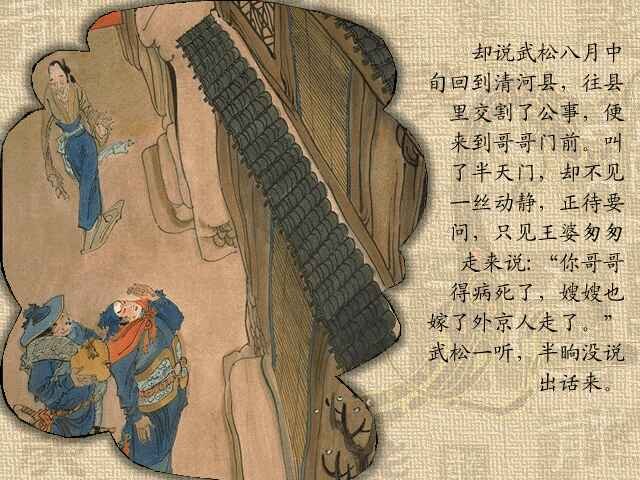 却说武松八月中
旬回到清河县，往县
里交割了公事，便
来到哥哥门前。叫
了半天门，却不见
一丝动静，正待要
问，只见王婆匆匆
走来说：“你哥哥
得病死了，嫂嫂也
嫁了外京人走了。”
武松一听，半晌没说
出话来。